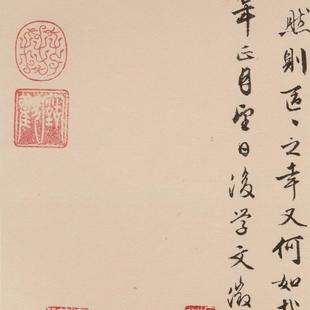 然則區〻之幸又何如哉
年正月望日後学文徵